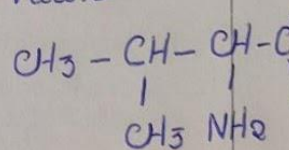 CH3 - CH - CH - C
CH3 NH2